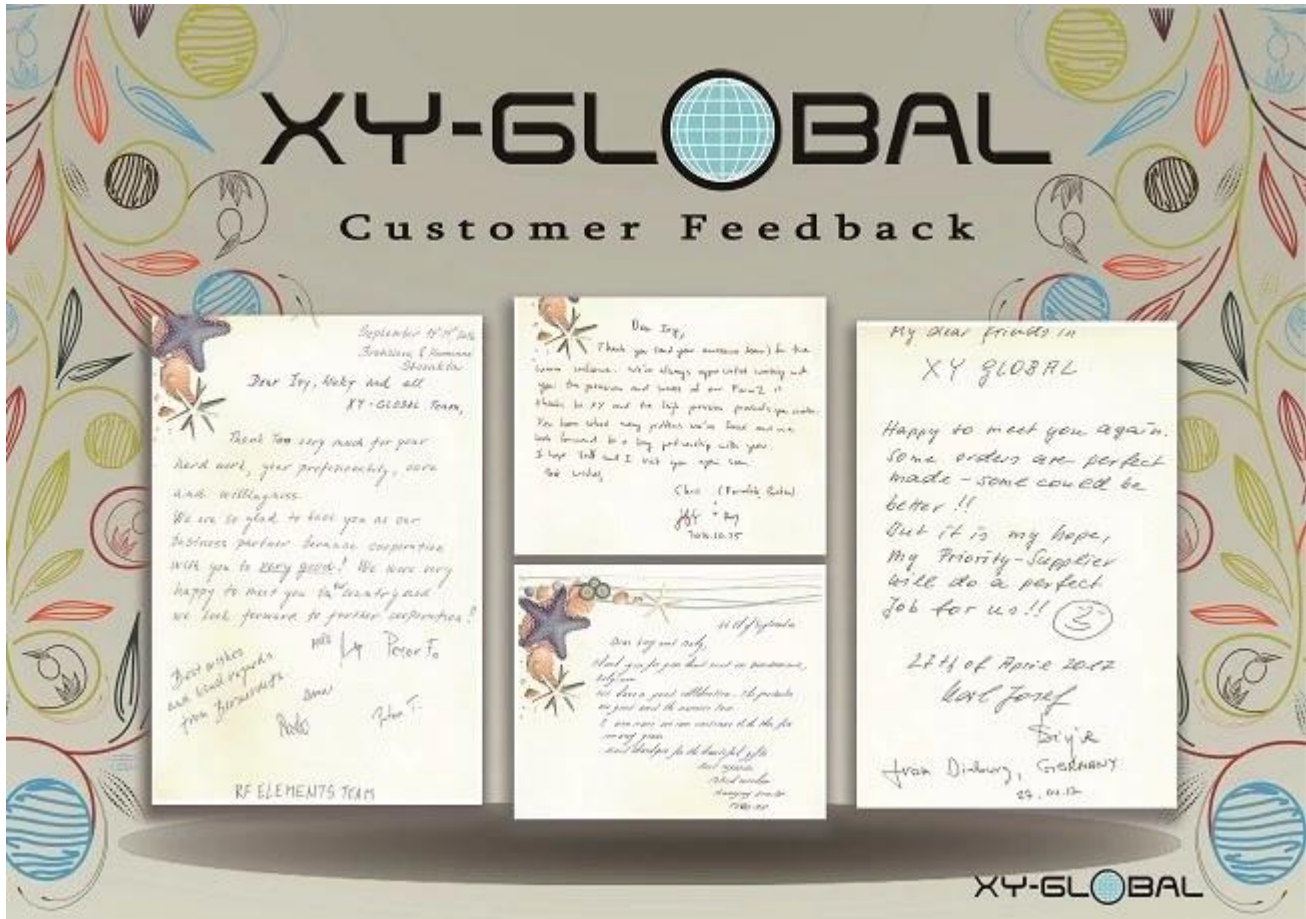 XY-GLOBAL
Customer Feedback
September
Slovakia
Dear Ivy, and all
XY-GLOBAL Team,
Thank You very much for your
hard work, your care
and willingness.
We are so glad to have you as our
business partner because cooperation
with you is very good! We were very
happy to meet you in our country and
we look forward to further cooperation!
Best wishes
and kind regards
from
Peter T.
RF ELEMENTS TEAM
Dear Ivy,
Thank you (and your awesome team) for the
warm welcome. We've always appreciated working with
you. The precision and of our Form 2 is
thanks to XY and the high precision products you make.
You have many we've and we
look forward to a long partnership with you.
I hope and I visit you again soon.
Best wishes,
Chris
of September
Dear Ivy and
thank you for you hard work
We have a good collaboration. The products
are good and the service too.
I am sure we can continue it like this for
many years
for the beautiful gifts
Best regards
My dear friends in
XY GLOBAL
Happy to meet you again.
Some orders are perfect
made - some could be
better!!
But it is my hope,
my Priority-Supplier
will do a perfect
Job for us!!
27th of April 2017
Karl Josef
from GERMANY
27.04.17
XY-GLOBAL